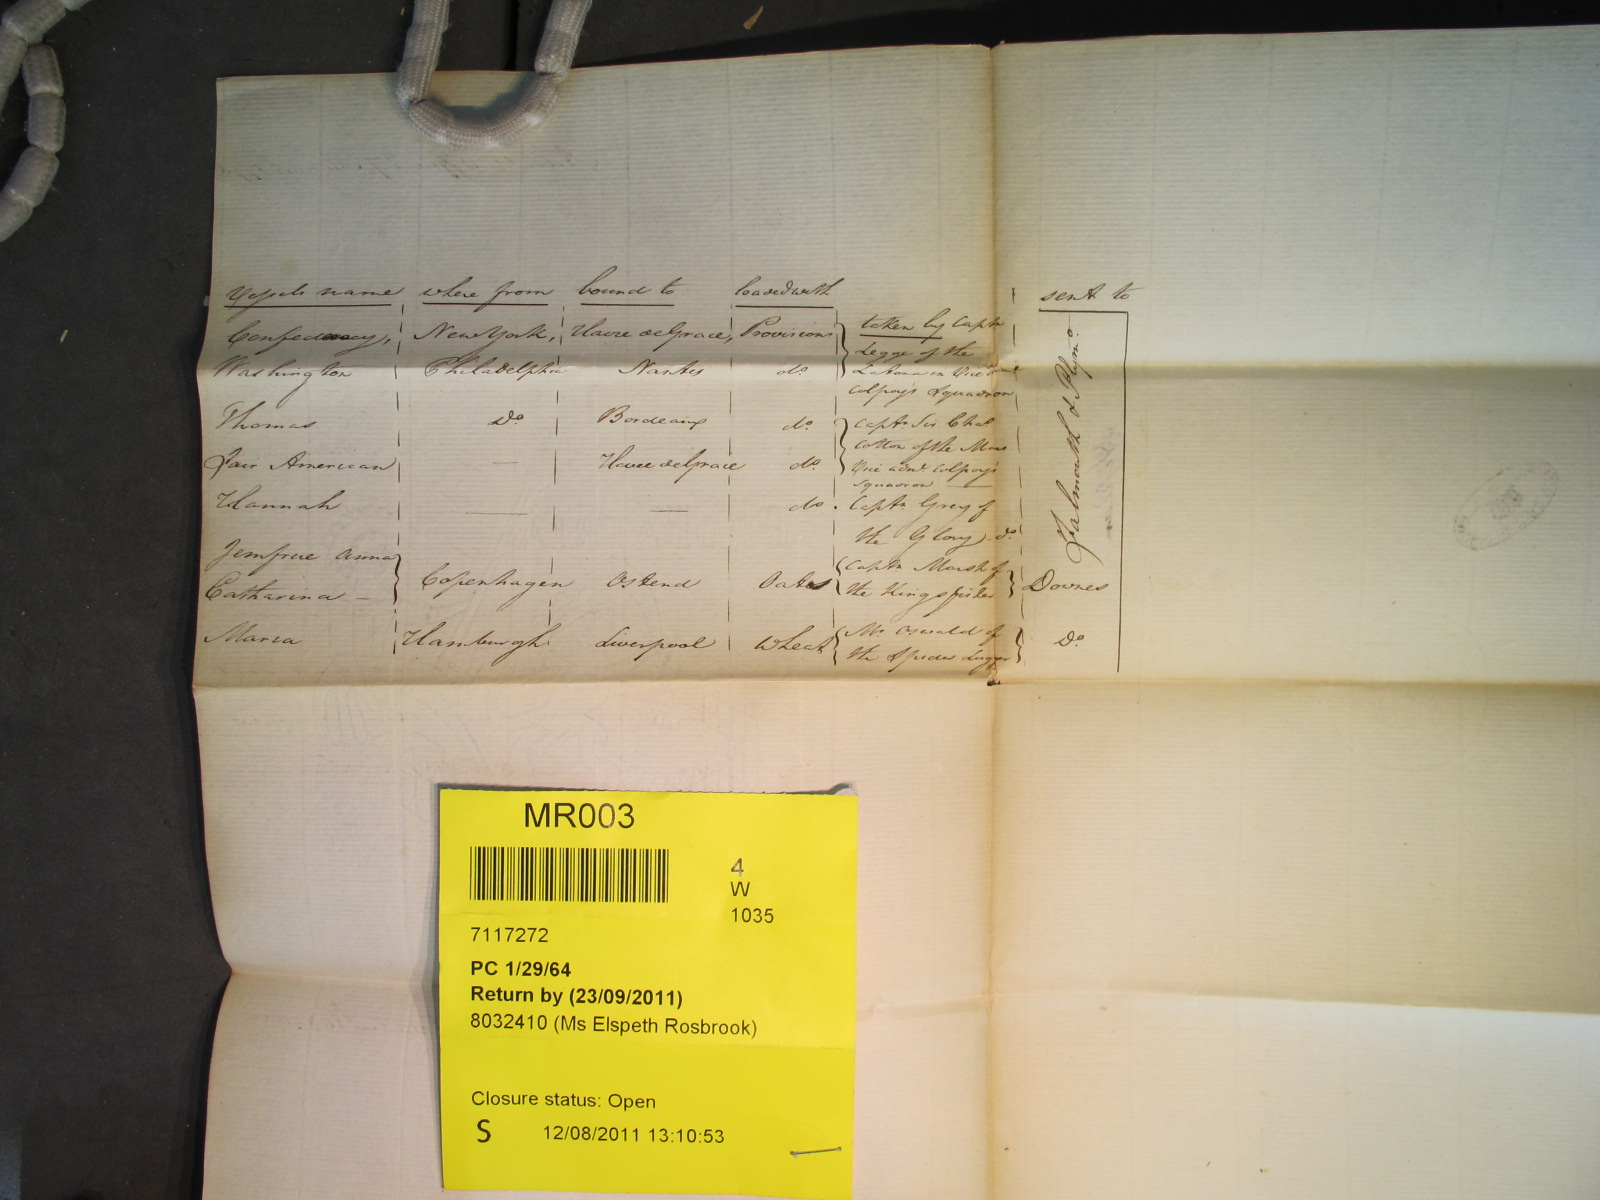 Vessels name where from bound to loaded with sent to
Confederacy, New York, Havre de Grace, Provisions taken by Captn
Legge of the
Washington Philadelphia Nantes do. Latona in Vice Adml
Colpoys Squadron
Thomas Do Bordeaux do. Captn Sir Chas
Cotton of the Mars
Fair American — Havre de Grace do. Vice adml Colpoys
Squadron
Hannah — — do. Captn Grey of
the Glory do
Falmouth & Plymo.
Jemfrue Anna Captn Marsh of
Catharina — Copenhagen Ostend Oats the Kingsfisher Downes
Maria Hamburgh Liverpool Wheat Mr Oswald of Do.
the Spider Lugger
MR003
4
W
1035
7117272
PC 1/29/64
Return by (23/09/2011)
8032410 (Ms Elspeth Rosbrook)
Closure status: Open
S 12/08/2011 13:10:53